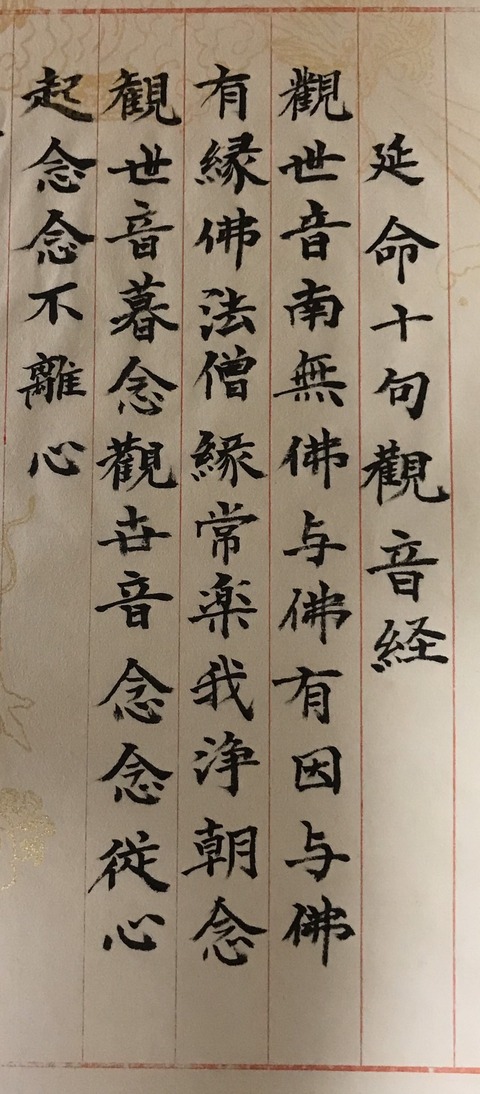 延命十句觀音経
觀世音南無佛与佛有因与佛
有縁佛法僧縁常楽我浄朝念
観世音暮念觀世音念念從心
起念念不離心